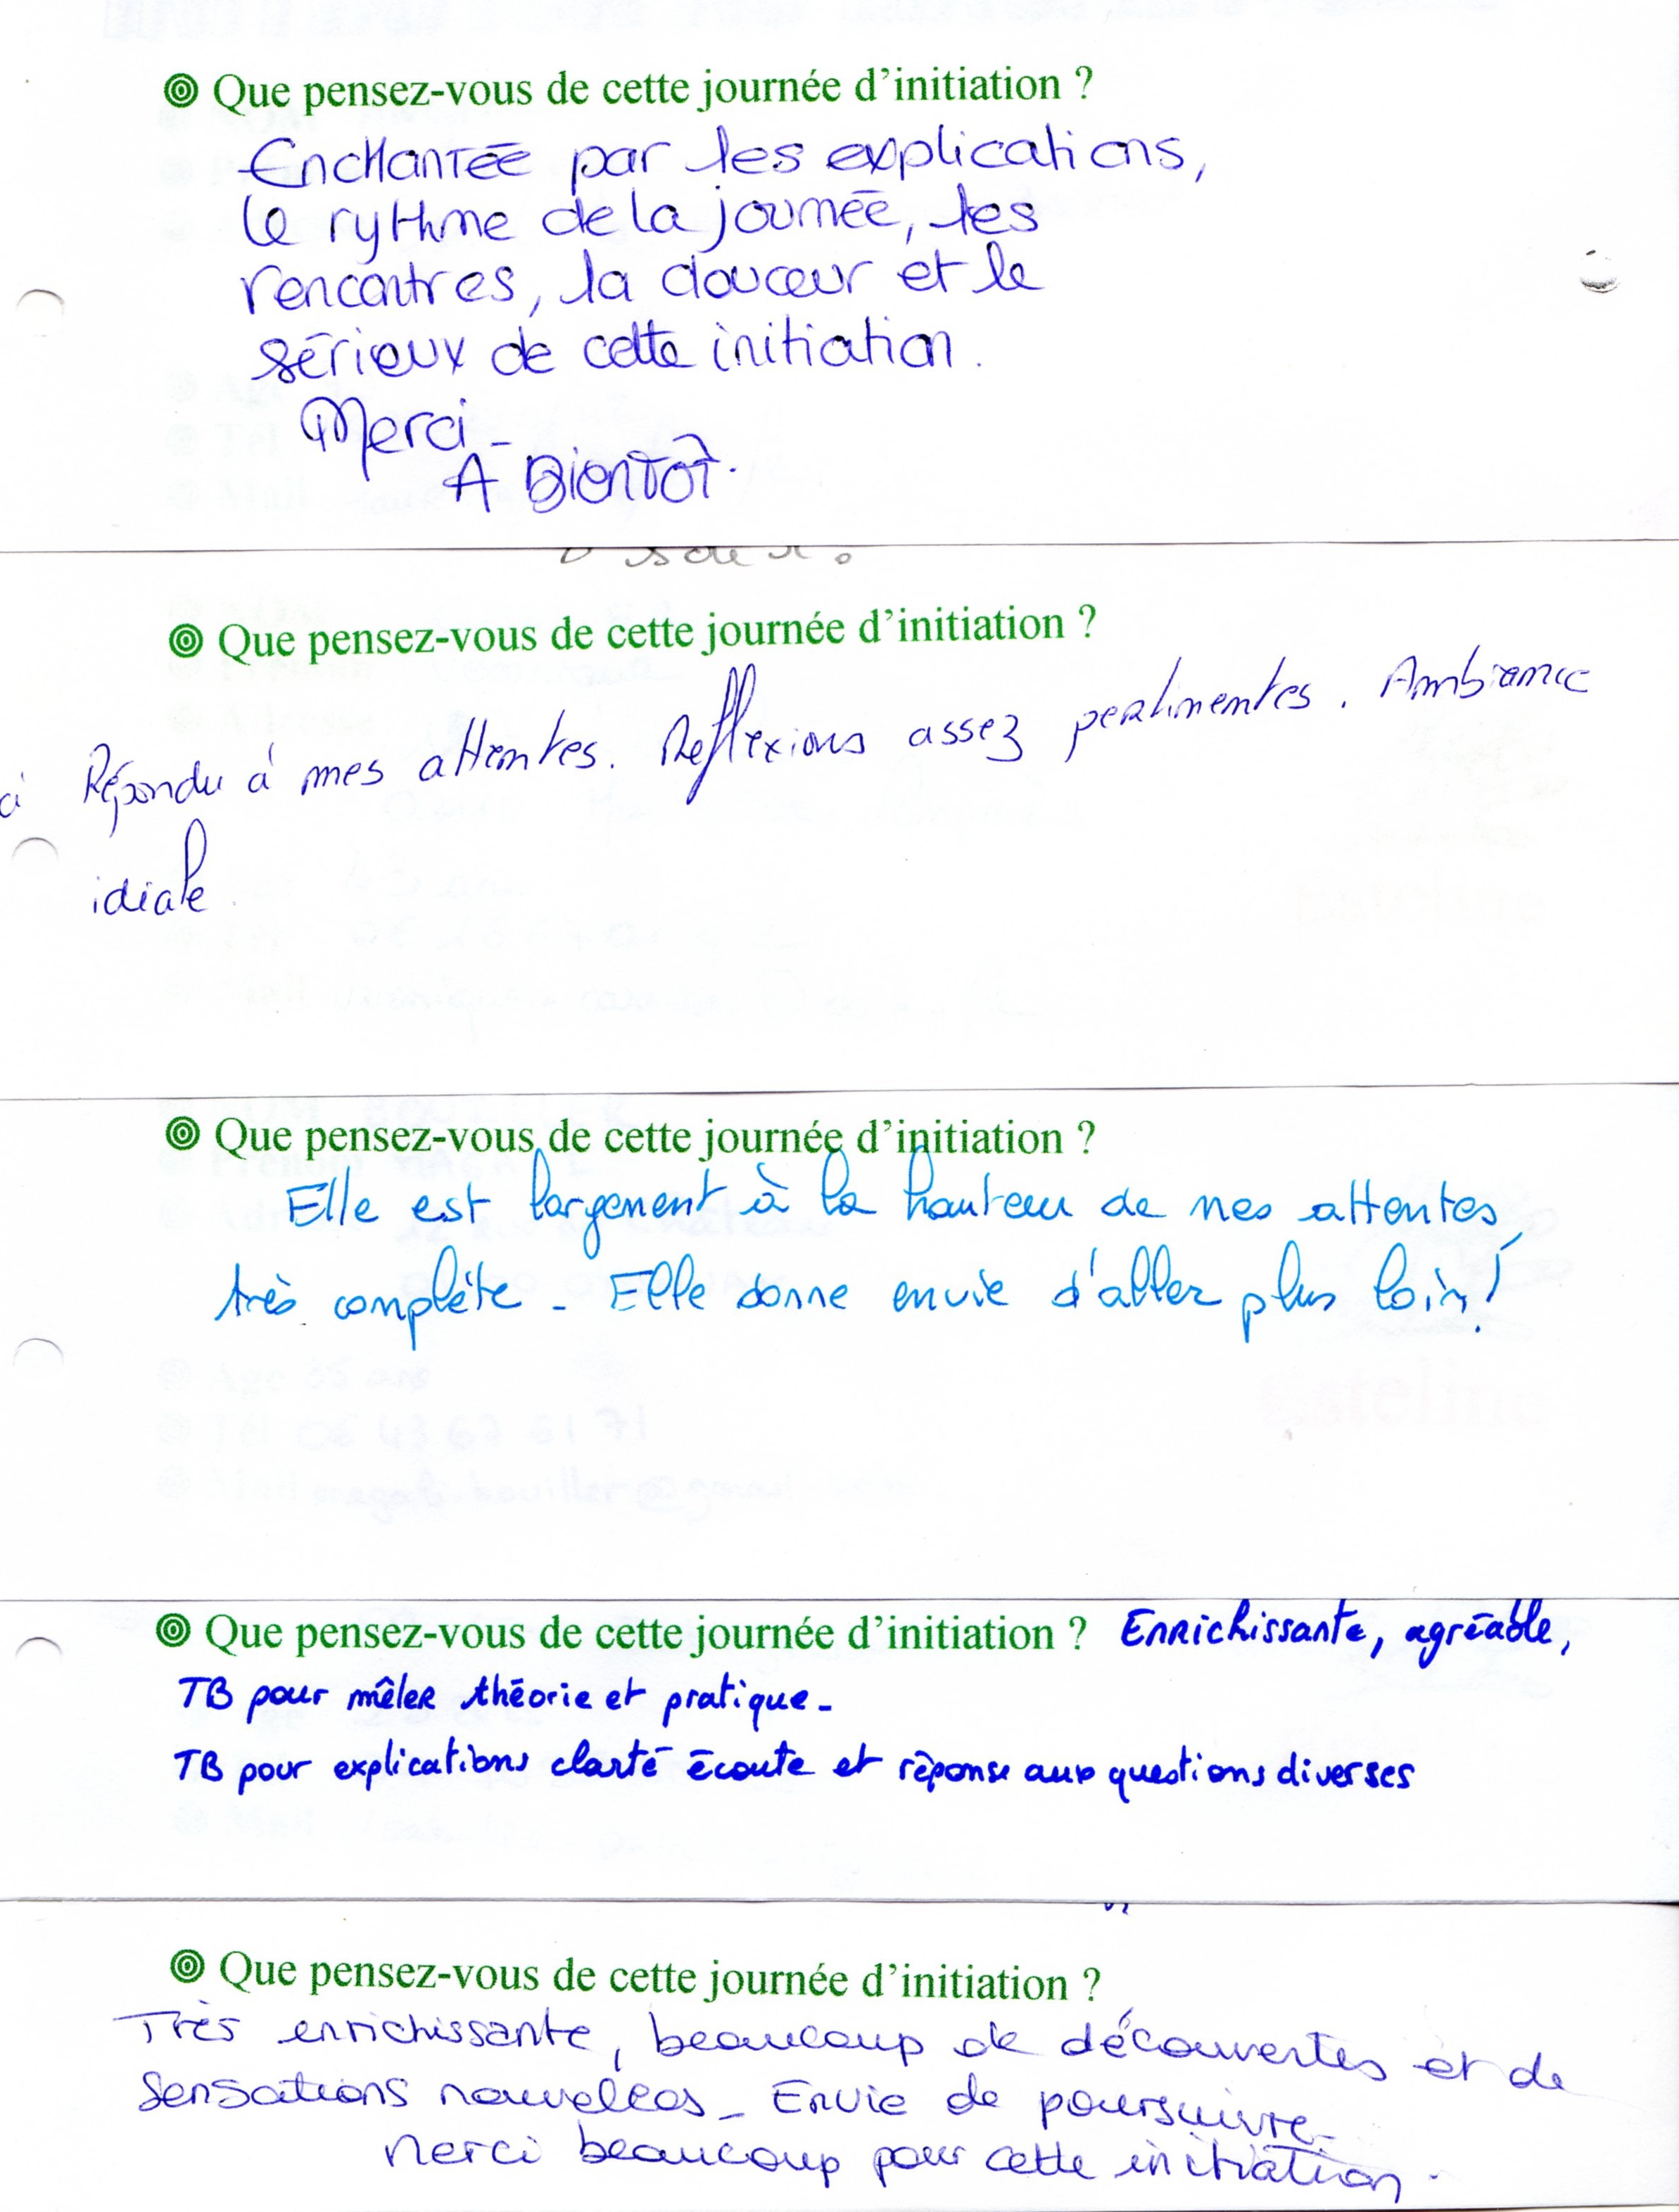 Que pensez-vous de cette journée d'initiation ?
Enchantée par les explications,
le rythme de la journée, les
rencontres, la douceur et le
sérieux de cette initiation.
Merci -
A Bientôt.
Que pensez-vous de cette journée d'initiation ?
Répondu à mes attentes. Réflexions assez pertinentes. Ambiance
idiale
Que pensez-vous de cette journée d'initiation ?
Elle est largement à la hauteur de nos attentes
très complète - Elle donne envie d'aller plus loin !
Que pensez-vous de cette journée d'initiation ? Enrichissante, agréable,
TB pour mêler théorie et pratique -
TB pour explications clarté écoute et réponse aux questions diverses
Que pensez-vous de cette journée d'initiation ?
Très enrichissante, beaucoup de découvertes et de
Sensations nouvelles - Envie de poursuivre -
Merci beaucoup pour cette initiation.